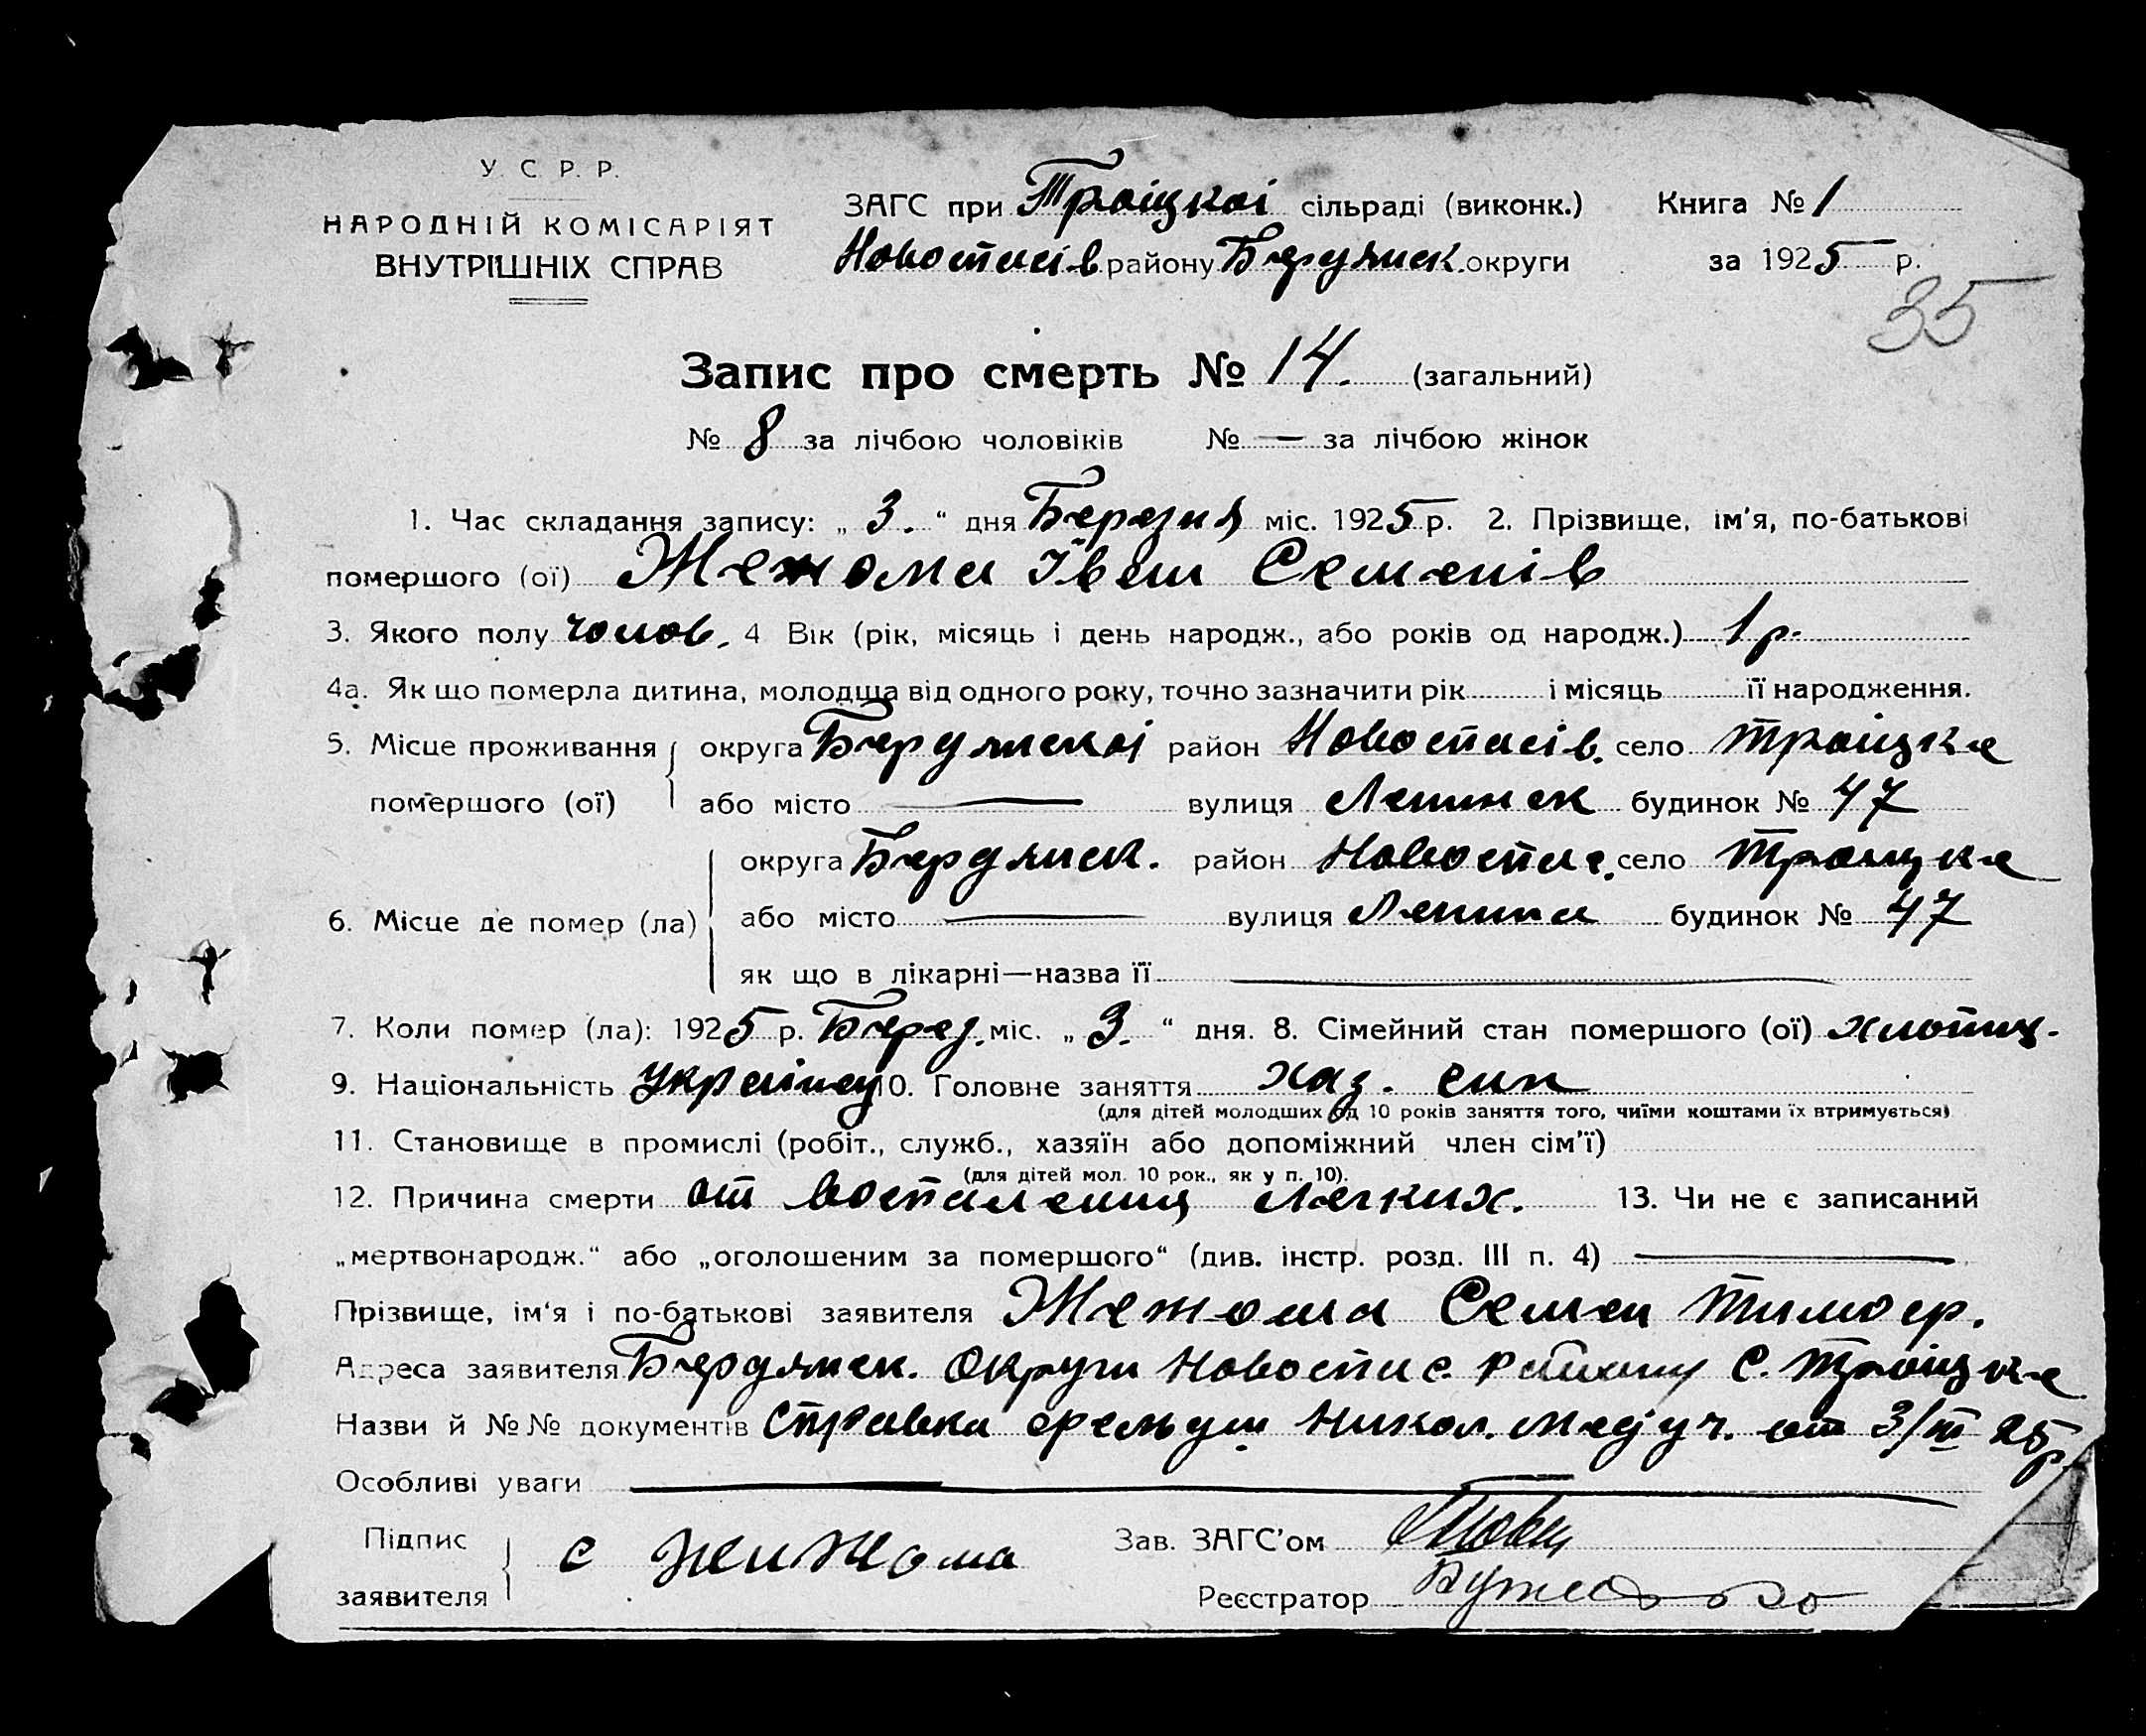 У. С. Р. Р.
НАРОДНІЙ КОМІСАРІЯТ
ВНУТРІШНІХ СПРАВ
ЗАГС при Троіцкоі сільраді (виконк.)
Новоспасів району Бердянск. округи
Книга № 1
за 1925 р.
35
Запис про смерть № 14. (загальний)
№ 8 за лічбою чоловіків № — за лічбою жінок
1. Час складання запису: „ 3. “ дня Березня міс. 1925 р. 2. Прізвище, ім'я, по-батькові
помершого (ої) Жежома Іван Семенів
3. Якого полу чолов. 4 Вік (рік, місяць і день народж., або років од народж.) 1 р.
4а. Як що померла дитина, молодща від одного року, точно зазначити рік і місяць її народження.
5. Місце проживання помершого (ої) округа Бердянскоі район Новоспасів. село Троіцке
або місто — вулиця Ленинск будинок № 47
6. Місце де помер (ла) округа Бердянск. район Новоспас. село Троицке
або місто — вулиця Ленина будинок № 47
як що в лікарні—назва її —
7. Коли помер (ла): 1925 р. Берез. міс. „ 3. “ дня. 8. Сімейний стан помершого (ої) хлопец.
9. Національність Українец 10. Головне заняття хаз. син
(для дітей молодших од 10 років заняття того, чиїми коштами їх втримується)
11. Становище в промислі (робіт., служб., хазяїн або допоміжний член сім'ї)
(для дітей мол. 10 рок., як у п. 10).
12. Причина смерти от воспаления легких. 13. Чи не є записаний
„мертвонародж.“ або „оголошеним за помершого“ (див. інстр. розд. III п. 4) —
Прізвище, ім'я і по-батькові заявителя Жежома Семен Тимоф.
Адреса заявителя Бердянск. Округи Новоспас. району С. Троіцке
Назви й №№ документів Справка фельдш Никол. медуч. от 3/III 25 р.
Особливі уваги —
Підпис заявителя С Жижома
Зав. ЗАГС'ом
Реєстратор